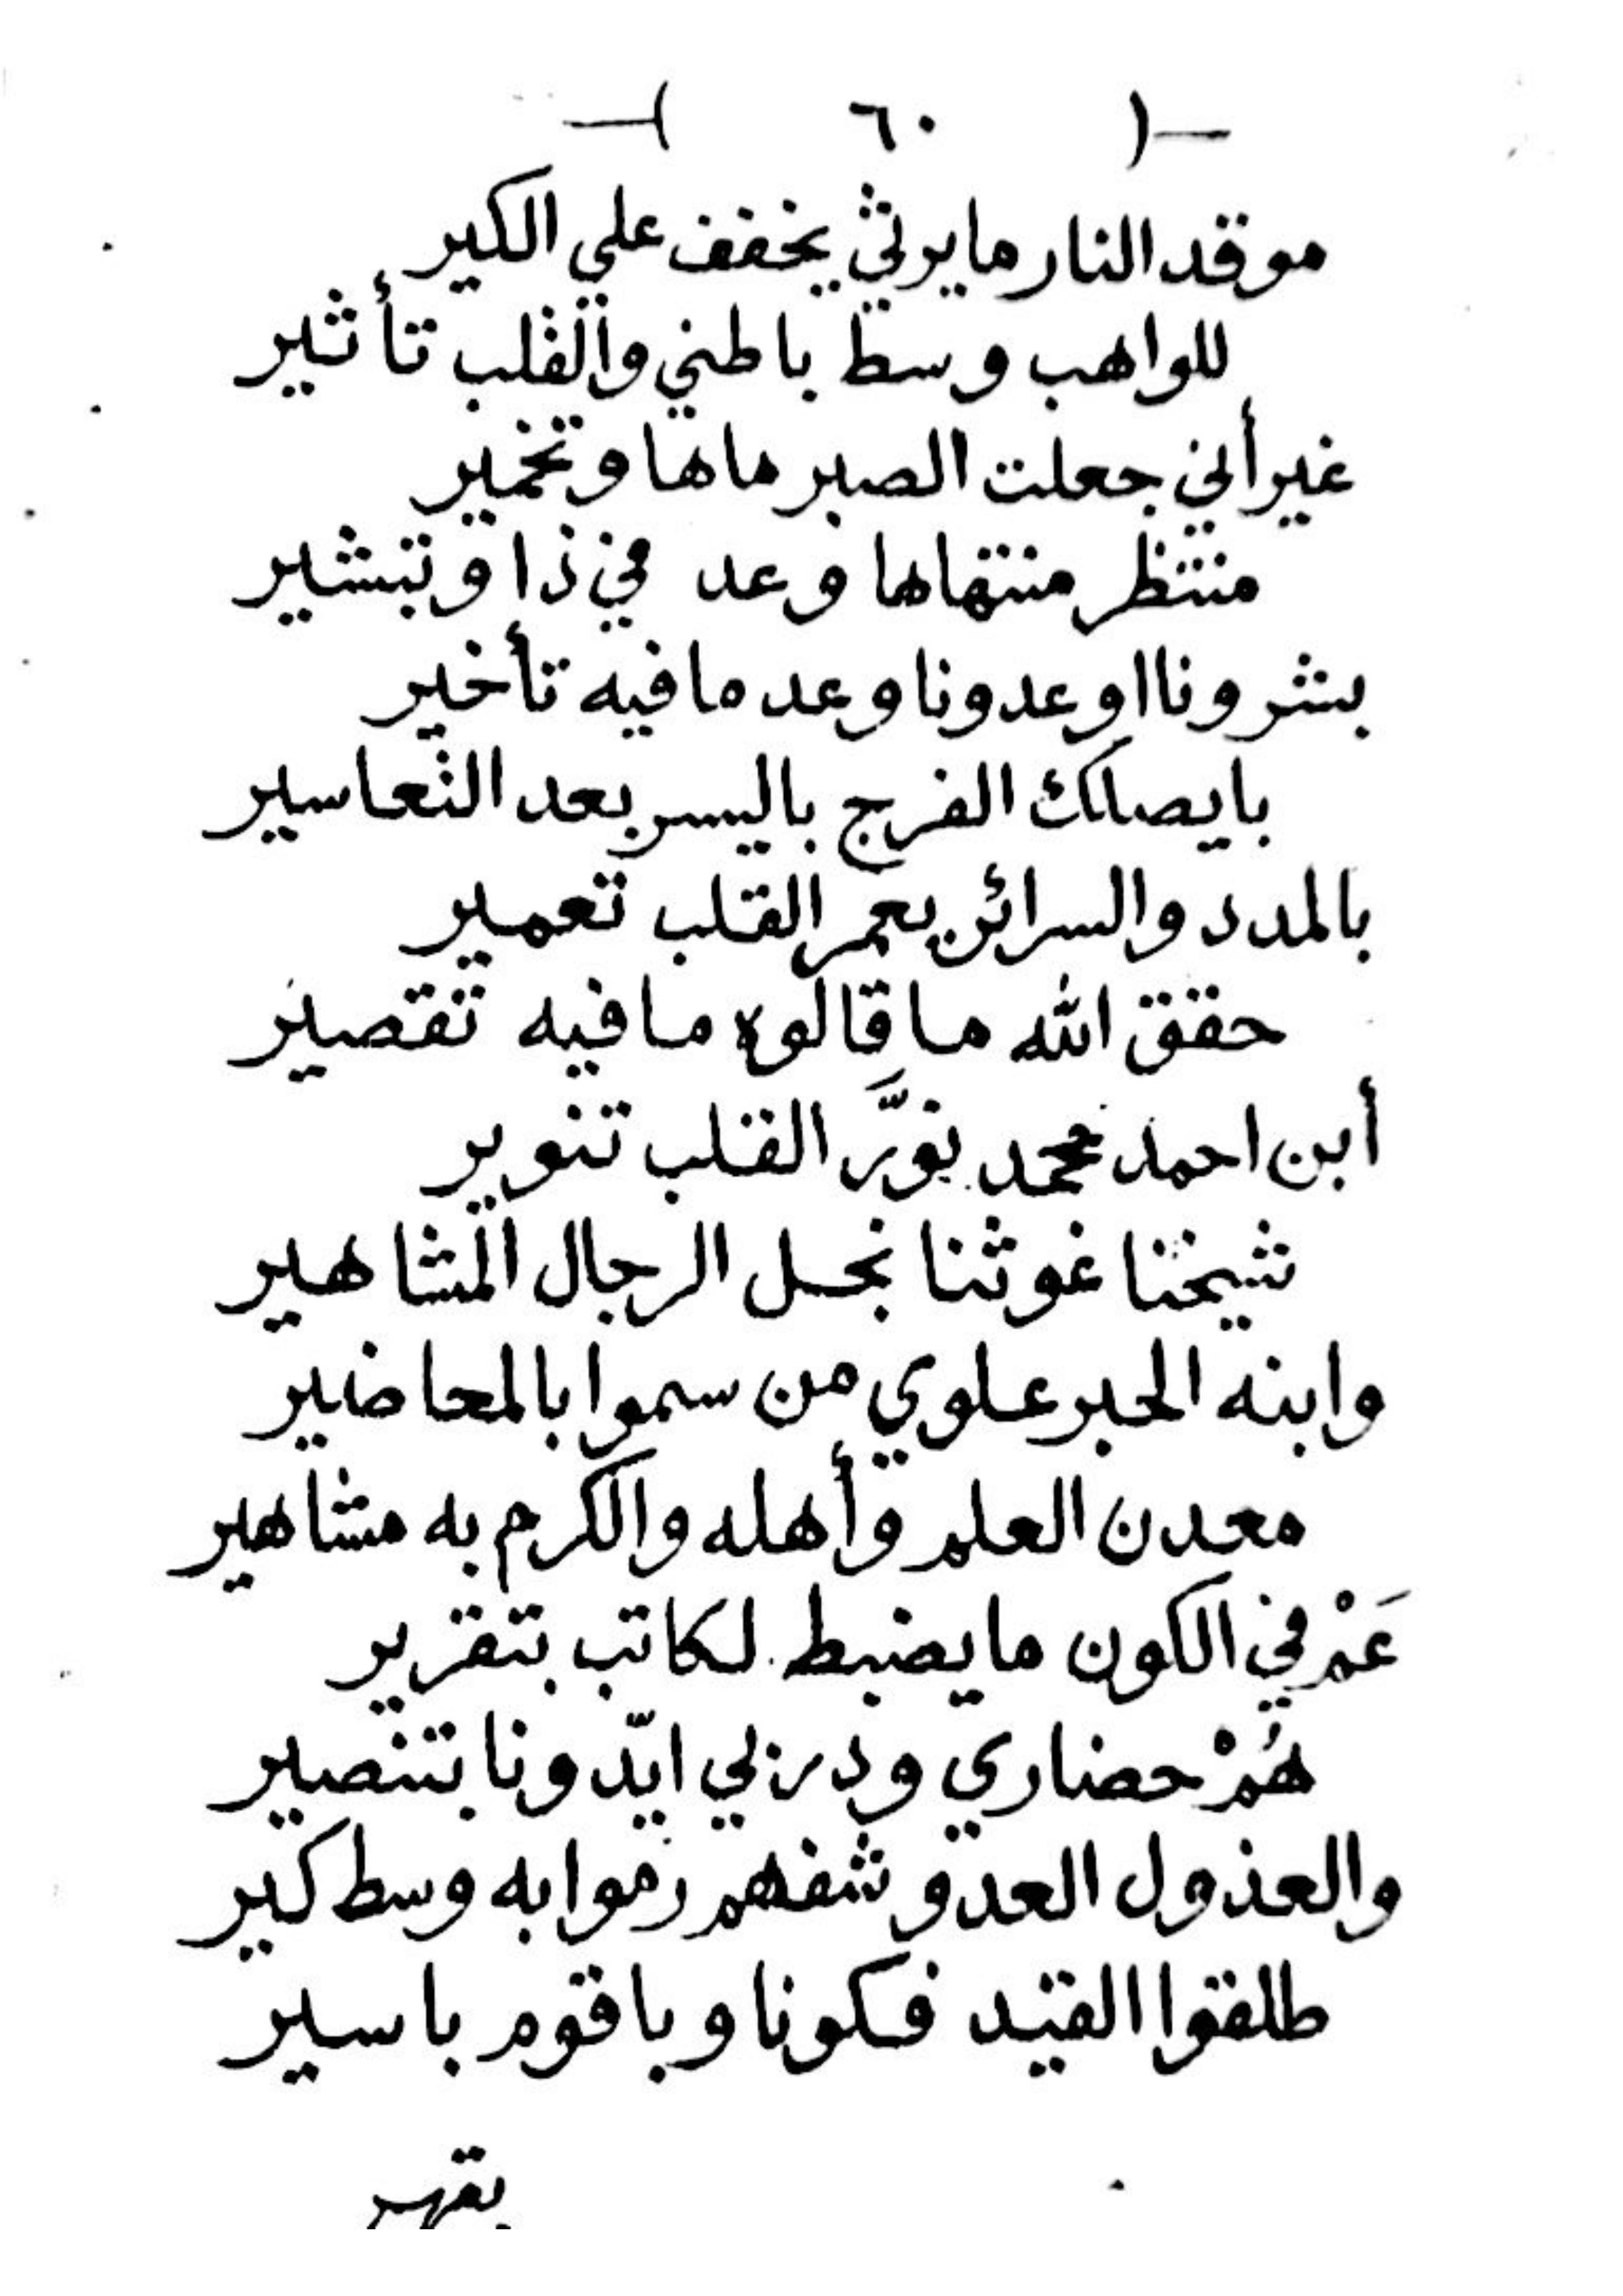 —( ٦٠ )—
موقد النار ما يرثي يخفف على الكير
للواهب وسط باطني والقلب تأثير
غير أني جعلت الصبر ماها وتخمير
منتظر منتهاها وعد في ذا وتبشير
بشرونا اوعدونا وعد ما فيه تأخير
با يصلك الفرج باليسر بعد التعاسير
بالمدد والسرائر يعمر القلب تعمير
حقق الله ما قالوه ما فيه تقصير
أبن احمد محمد نوَّر القلب تنوير
شيخنا غوثنا نجل الرجال المشاهير
وابنه الحبر علوي من سموا بالمحاضير
معدن العلم وأهله والكرم به مشاهير
عَمْ في الكون ما يضبط لكاتب بتقرير
هُمْ حضاري ودربي ايّدونا بتنصير
والعذول العدو شفهم رموا به وسط كير
طلقوا القيد فكونا وبا قوم با سير
بقهر